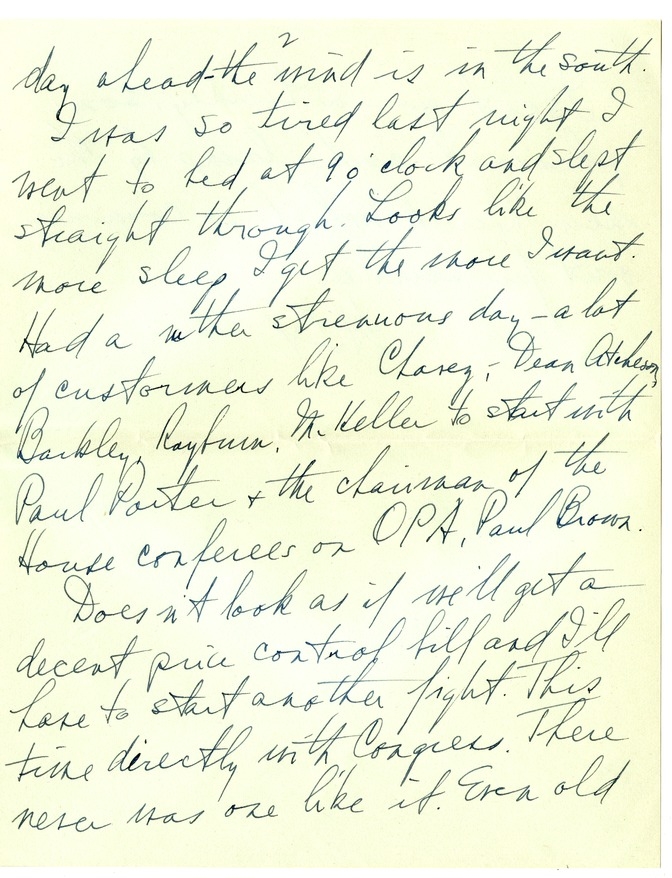 2
day ahead - the wind is in the south.
I was so tired last night I
went to bed at 9 o'clock and slept
straight through. Looks like the
more sleep I get the more I want.
Had a rather strenuous day - a lot
of customers like Chavez, Dean Atcheson,
Barkley, Rayburn, McKeller to start with
Paul Porter + the chairman of the
House conferees on OPA, Paul Brown.
Doesn't look as if we'll get a
decent price control bill and I'll
have to start another fight. This
time directly with Congress. There
never was one like it. Even old